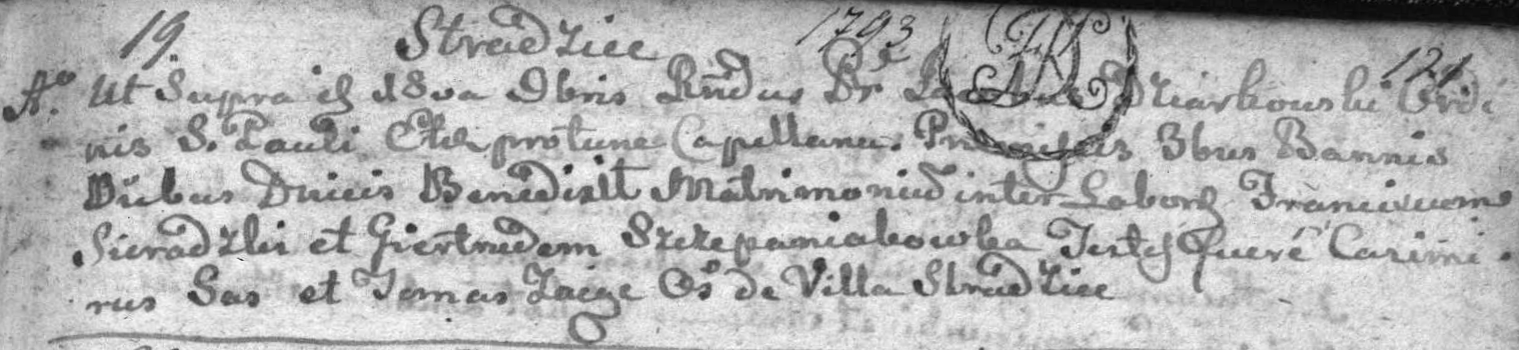 19. Stradzice 1793 121
A.º Ut Supra 18va Xbris Rndus Pr Dziarkowski Ordi
nis S. Pauli Capellanus 3bus Bannis
Diebus Dnicis Benedixit Matrimoniū inter Labors Franciscum
Sieradzki et Giertrudem Szczepaniakowka Testes fuere Casimi
rus Sas et Tomas Zaięc Os de Villa Stradzice